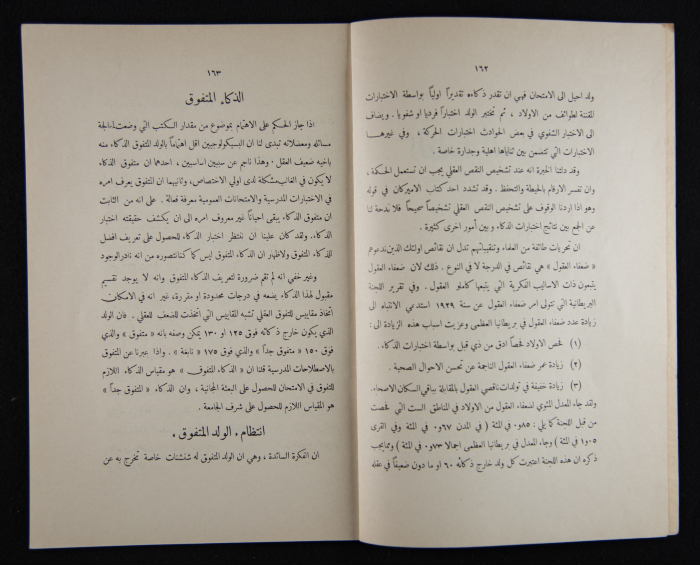 ١٦٢
ولد احيل الى الامتحان فهي ان تقدر ذكاءه تقديراً اولياً بواسطة الاختبارات
المقننة لطوائف من الاولاد ، ثم تختبر الولد اختباراً فرديا او شفويا . ويضاف
الى الاختبار الشفوي في بعض الحوادث اختبارات الحركة ، وفي غيرهـا
الاختبارات التي تتضمن بين ثناياها اهلية وجدارة خاصة .
وقد دلتنا الخبرة انه عند تشخيص النقص العقلي يجب ان تستعمل الحكمة ،
وان تفسر الارقام بالحيطة والتحفظ . وقد تشدد احد كتاب الاميركان في قوله
وهو اذا اردنا الوقوف على تشخيص النقص العقلي تشخيصاً صحيحاً فلا ندحة لنا
عن الجمع بين نتائج اختبارات الذكاء ، وبين أمور اخرى كثيرة .
ان تحريات طائفة من العلماء وتنقيباتهم تدل ان نقائص اولئك الذين ندعوهم
« ضعاف العقول » هي نقائص في الدرجة لا في النوع . ذلك لان ضعاف العقول
يتبعون ذات الاساليب الفكرية التي يتبعها كاملو العقول . وفي تقرير اللجنة
البريطانية التي تتولى امر ضعفاء العقول عن سنة ١٩٢٩ استدعي الانتباه الى
زيادة عدد ضعفاء العقول في بريطانيا العظمى وعزيت اسباب هذه الزيادة الى :
(١) فحص الاولاد فحصاً ادق من ذي قبل بواسطة اختبارات الذكاء .
(٢) زيادة عمر ضعفاء العقول الناجمة عن تحسن الاحوال الصحية .
(٣) زيادة خفيفة في تولدات ناقصي العقول بالمقابلة بباقي السكان الاصحاء .
ولقد جاء المعدل المئوي لضعفاء العقول من الاولاد في المناطق الست التي فحصت
من قبل اللجنة كما يلي : ٨٥و. في المئة ( في المدن ٦٧و. في المئة وفي القرى
١و٠٥ في المئة ) وجاء المعدل في بريطانيا العظمى اجمالا ٧٣و. في المئة ) ومما يجب
ذكره ان هذه اللجنة اعتبرت كل ولد خارج ذكائه ٦٠ او ما دون ضعيفاً في عقله
١٦٣
الذكاء المتفوق
اذا جاز الحكم على الاهتمام بموضوع من مقدار الكتب التي وضعت لمعالجة
مسائله ومعضلاته تبدى لنا ان البسيكولوجيين اقل اهتماماً بالولد المتفوق الذكاء منه
باخيه ضعيف العقل . وهذا ناجم عن سببين اساسيين ، احدهما ان متفوق الذكاء
لا يكون في الغالب مشكلة لدى اولي الاختصاص، وثانيهما ان المتفوق يعرف امره
في الاختبارات المدرسية والامتحانات العمومية معرفة فعالة . على انه من الثابت
ان متفوق الذكاء يبقى احياناً غير معروف امره الى ان يكشف حقيقته اختبار
الذكاء. ولقد كان علينا ان ننتظر اختبار الذكاء للحصول على تعريف افضل
للذكاء المتفوق ولاظهار ان الذكاء المتفوق ليس كما كنا نتصوره من انه نادر الوجود
وغير خفي انه لم تقم ضرورة لتعريف الذكاء المتفوق وانه لا يوجد تقسيم
مقبول لهذا الذكاء يضعه في درجات محدودة او مقررة، غير انه في الامكان
اتخاذ مقاييس للتفوق العقلي تشبه المقاييس التي اتخذت للضعف العقلي . فان الولد
الذي يكون خارج ذكائه فوق ١٢٥ او ١٣٠ يمكن وصفه بانه « متفوق » والذي
فوق ١٥٠ « متفوق جداً » والذي فوق ١٧٥ « نابغة » . واذا عبرنا عن المتفوق
بالاصطلاحات المدرسية قلنا ان « الذكاء المتفوق » هو مقياس الذكاء اللازم
للتفوق في الامتحان للحصول على البعثة المجانية ، وان الذكاء « المتفوق جداً »
هو المقياس اللازم للحصول على شرف الجامعة .
انتظام . الولد المتفوق .
ان الفكرة السائدة ، وهي ان الولد المتفوق له شنشنات خاصة تخرج به عن